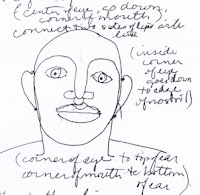 (center of eye, go down,
corner of mouth)
connect two sides of lips
line
(inside
corner
of eye
goes down
to edge
of nostril)
(corner of eye to top of ear
corner of mouth to bottom
of ear)